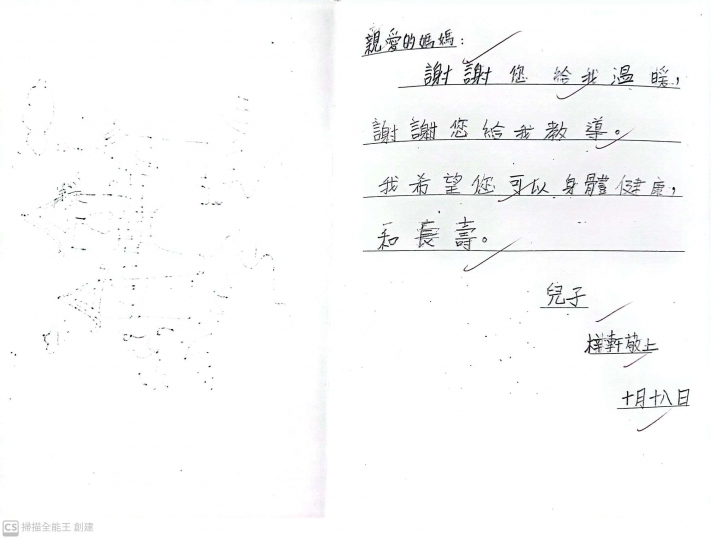 親愛的媽媽：
謝謝您給我溫暖，
謝謝您給我教導。
我希望您可以身體健康，
和長壽。
兒子
樺軒敬上
十月十八日
CS 掃描全能王 創建